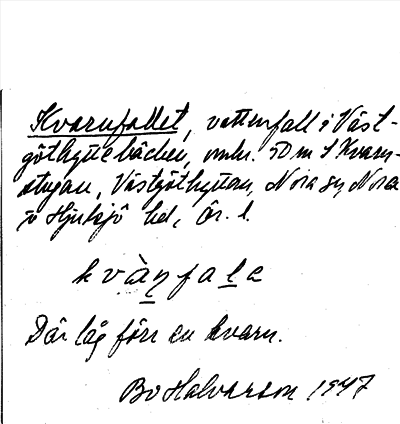 Kvarnfallet, vattenfall i Väst-
göthyttebäcken, omkr. 50 m S Kvarn-
stugan, Västgöthyttan, Nora sn, Nora
o Hjulsjö hd, Ör. l.
kvà̱ṉfaḻe
Där låg förr en kvarn.
Bo Halvarson 1947